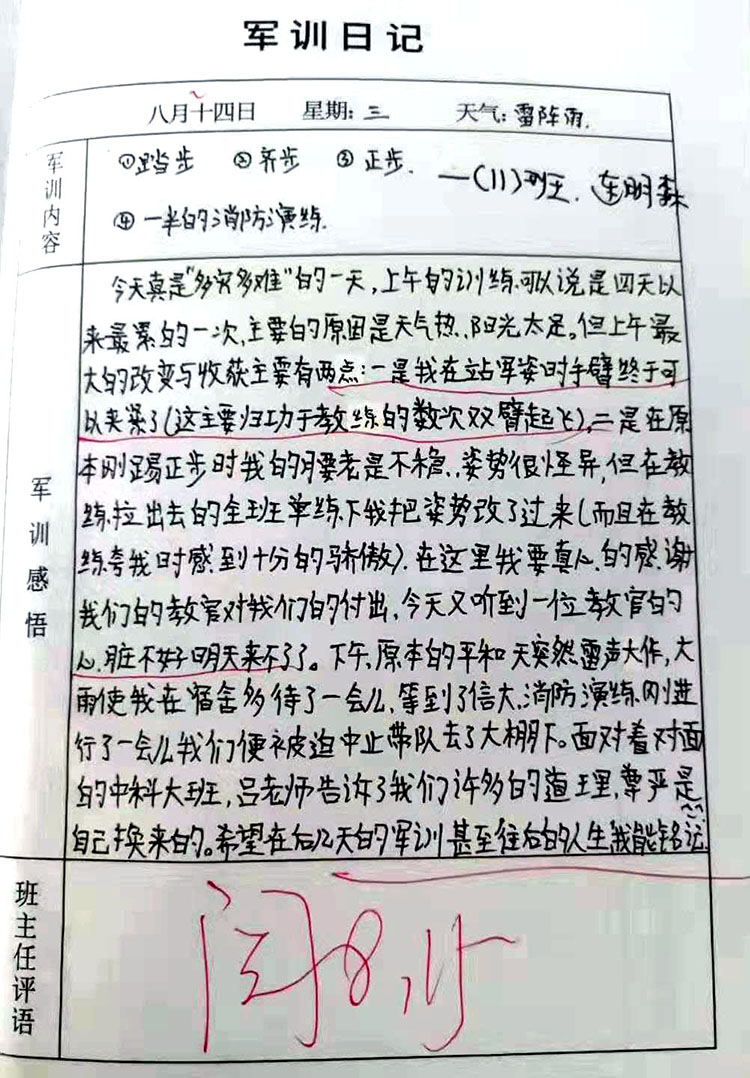 军训日记
八月十四日 星期:三 天气:雷阵雨.
军训内容
①踏步 ②齐步 ③正步. 一(11)班王. 连明森
④一半的消防演练.
军训感悟
今天真是“多灾多难”的一天,上午的训练可以说是四天以
来最累的一次,主要的原因是天气热,阳光太足。但上午最
大的改变与收获主要有两点:一是我在站军姿时手臂终于可
以夹紧了(这主要归功于教练的数次双臂起飞),二是在原
本刚踢正步时我的腰老是不稳,姿势很怪异,但在教
练拉出去的全班单练下我把姿势改了过来(而且在教
练夸我时感到十分的骄傲).在这里我要真心的感谢
我们的教官对我们的付出,今天又听到一位教官的
心脏不好明天来不了了。下午,原本的平和天突然雷声大作,大
雨使我在宿舍多待了一会儿,等到了信大,消防演练刚进
行了一会儿我们便被迫中止带队去了大棚下。面对着对面
的中科大班,吕老师告诉了我们许多的道理,尊严是
自己换来的。希望在后几天的军训甚至往后的人生我能铭记.
班主任评语
闫8,15